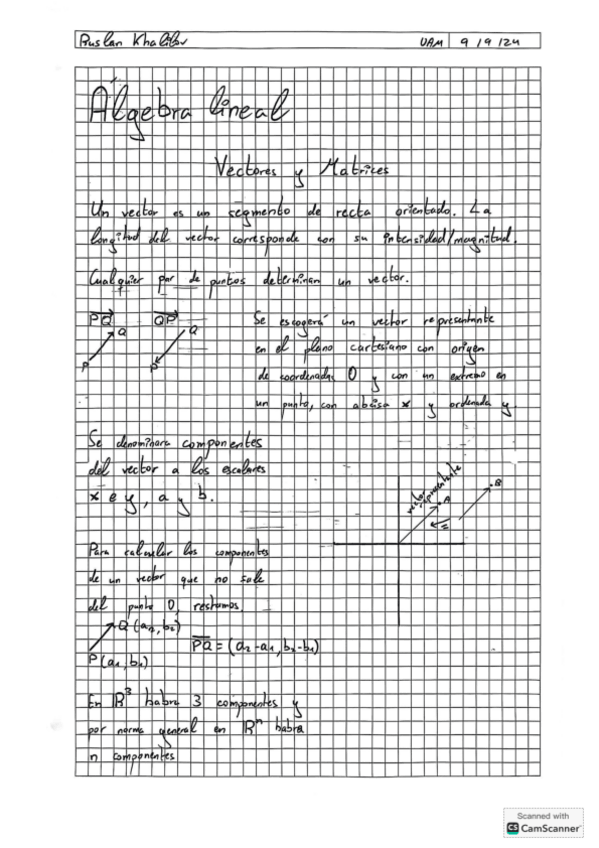 Ruslan Khalilov UAM 9/9/24
Álgebra lineal
Vectores y Matrices
Un vector es un segmento de recta orientado. La
longitud del vector corresponde con su intensidad/magnitud.
Cualquier par de puntos determinan un vector.
PQ QP
Q Q
P P
Se escogerá un vector representante
en el plano cartesiano con origen
de coordenadas O y con un extremo en
un punto, con abcisa x y ordenada y.
Se denominara componentes
del vector a los escalares
x e y, a y b.
vector
representante
A
B
=
Para calcular los componentes
de un vector que no sale
del punto O, restamos.
Q (a2, b2)
PQ = (a2-a1, b2-b1)
P(a1, b1)
En R³ habra 3 componentes y
por norma general en Rⁿ habra
n componentes
Scanned with
CS CamScanner